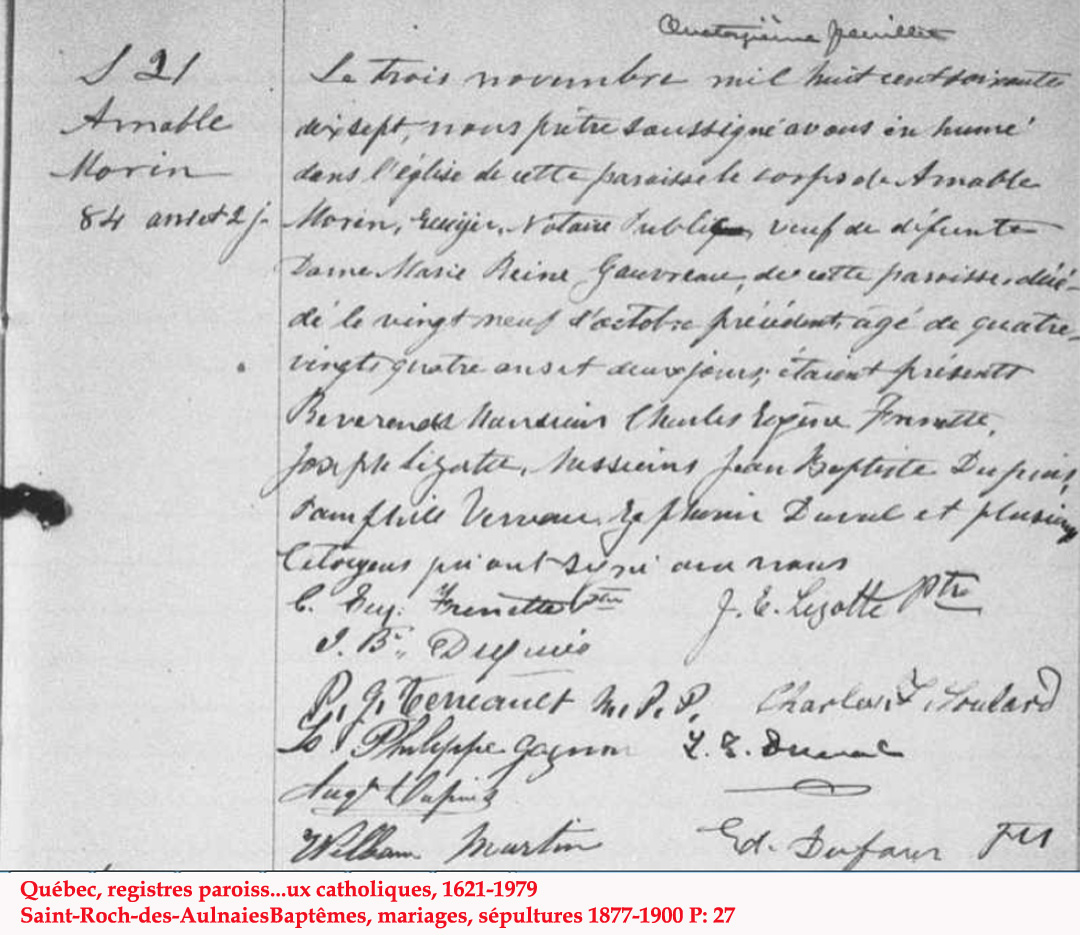 Quatorzième feuillet
S 21
Amable
Morin
84 ans et 2 j.
Le trois novembre mil huit cent soixante
dixsept, nous prêtre soussigné avons inhumé
dans l'église de cette paroisse le corps de Amable
Morin, Ecuyer, Notaire Public, veuf de défunte
Dame Marie Reine Gauvreau, de cette paroisse, décé-
dé le vingt neuf d'octobre précédent, âgé de quatre-
vingts quatre ans et deux jours; étaient présents
Reverends Messieurs Charles Eugène Frenette,
Joseph Lizotte, Messieurs Jean Baptiste Dupuis,
Pamphile Verreau, Zéphirin Duval et plusieurs
Citoyens qui ont signé avec nous
C. Eug. Frenette Ptre
J. E. Lizotte Ptre
J. Bte. Dupuis
P. G. Verreault M.P.P.
Charles F. Soulard
Ls. Philippe Gagnon
Z. E. Duval
Augte Dupuis
William Martin
Ed. Dufour
Québec, registres paroiss...ux catholiques, 1621-1979
Saint-Roch-des-AulnaiesBaptêmes, mariages, sépultures 1877-1900 P: 27